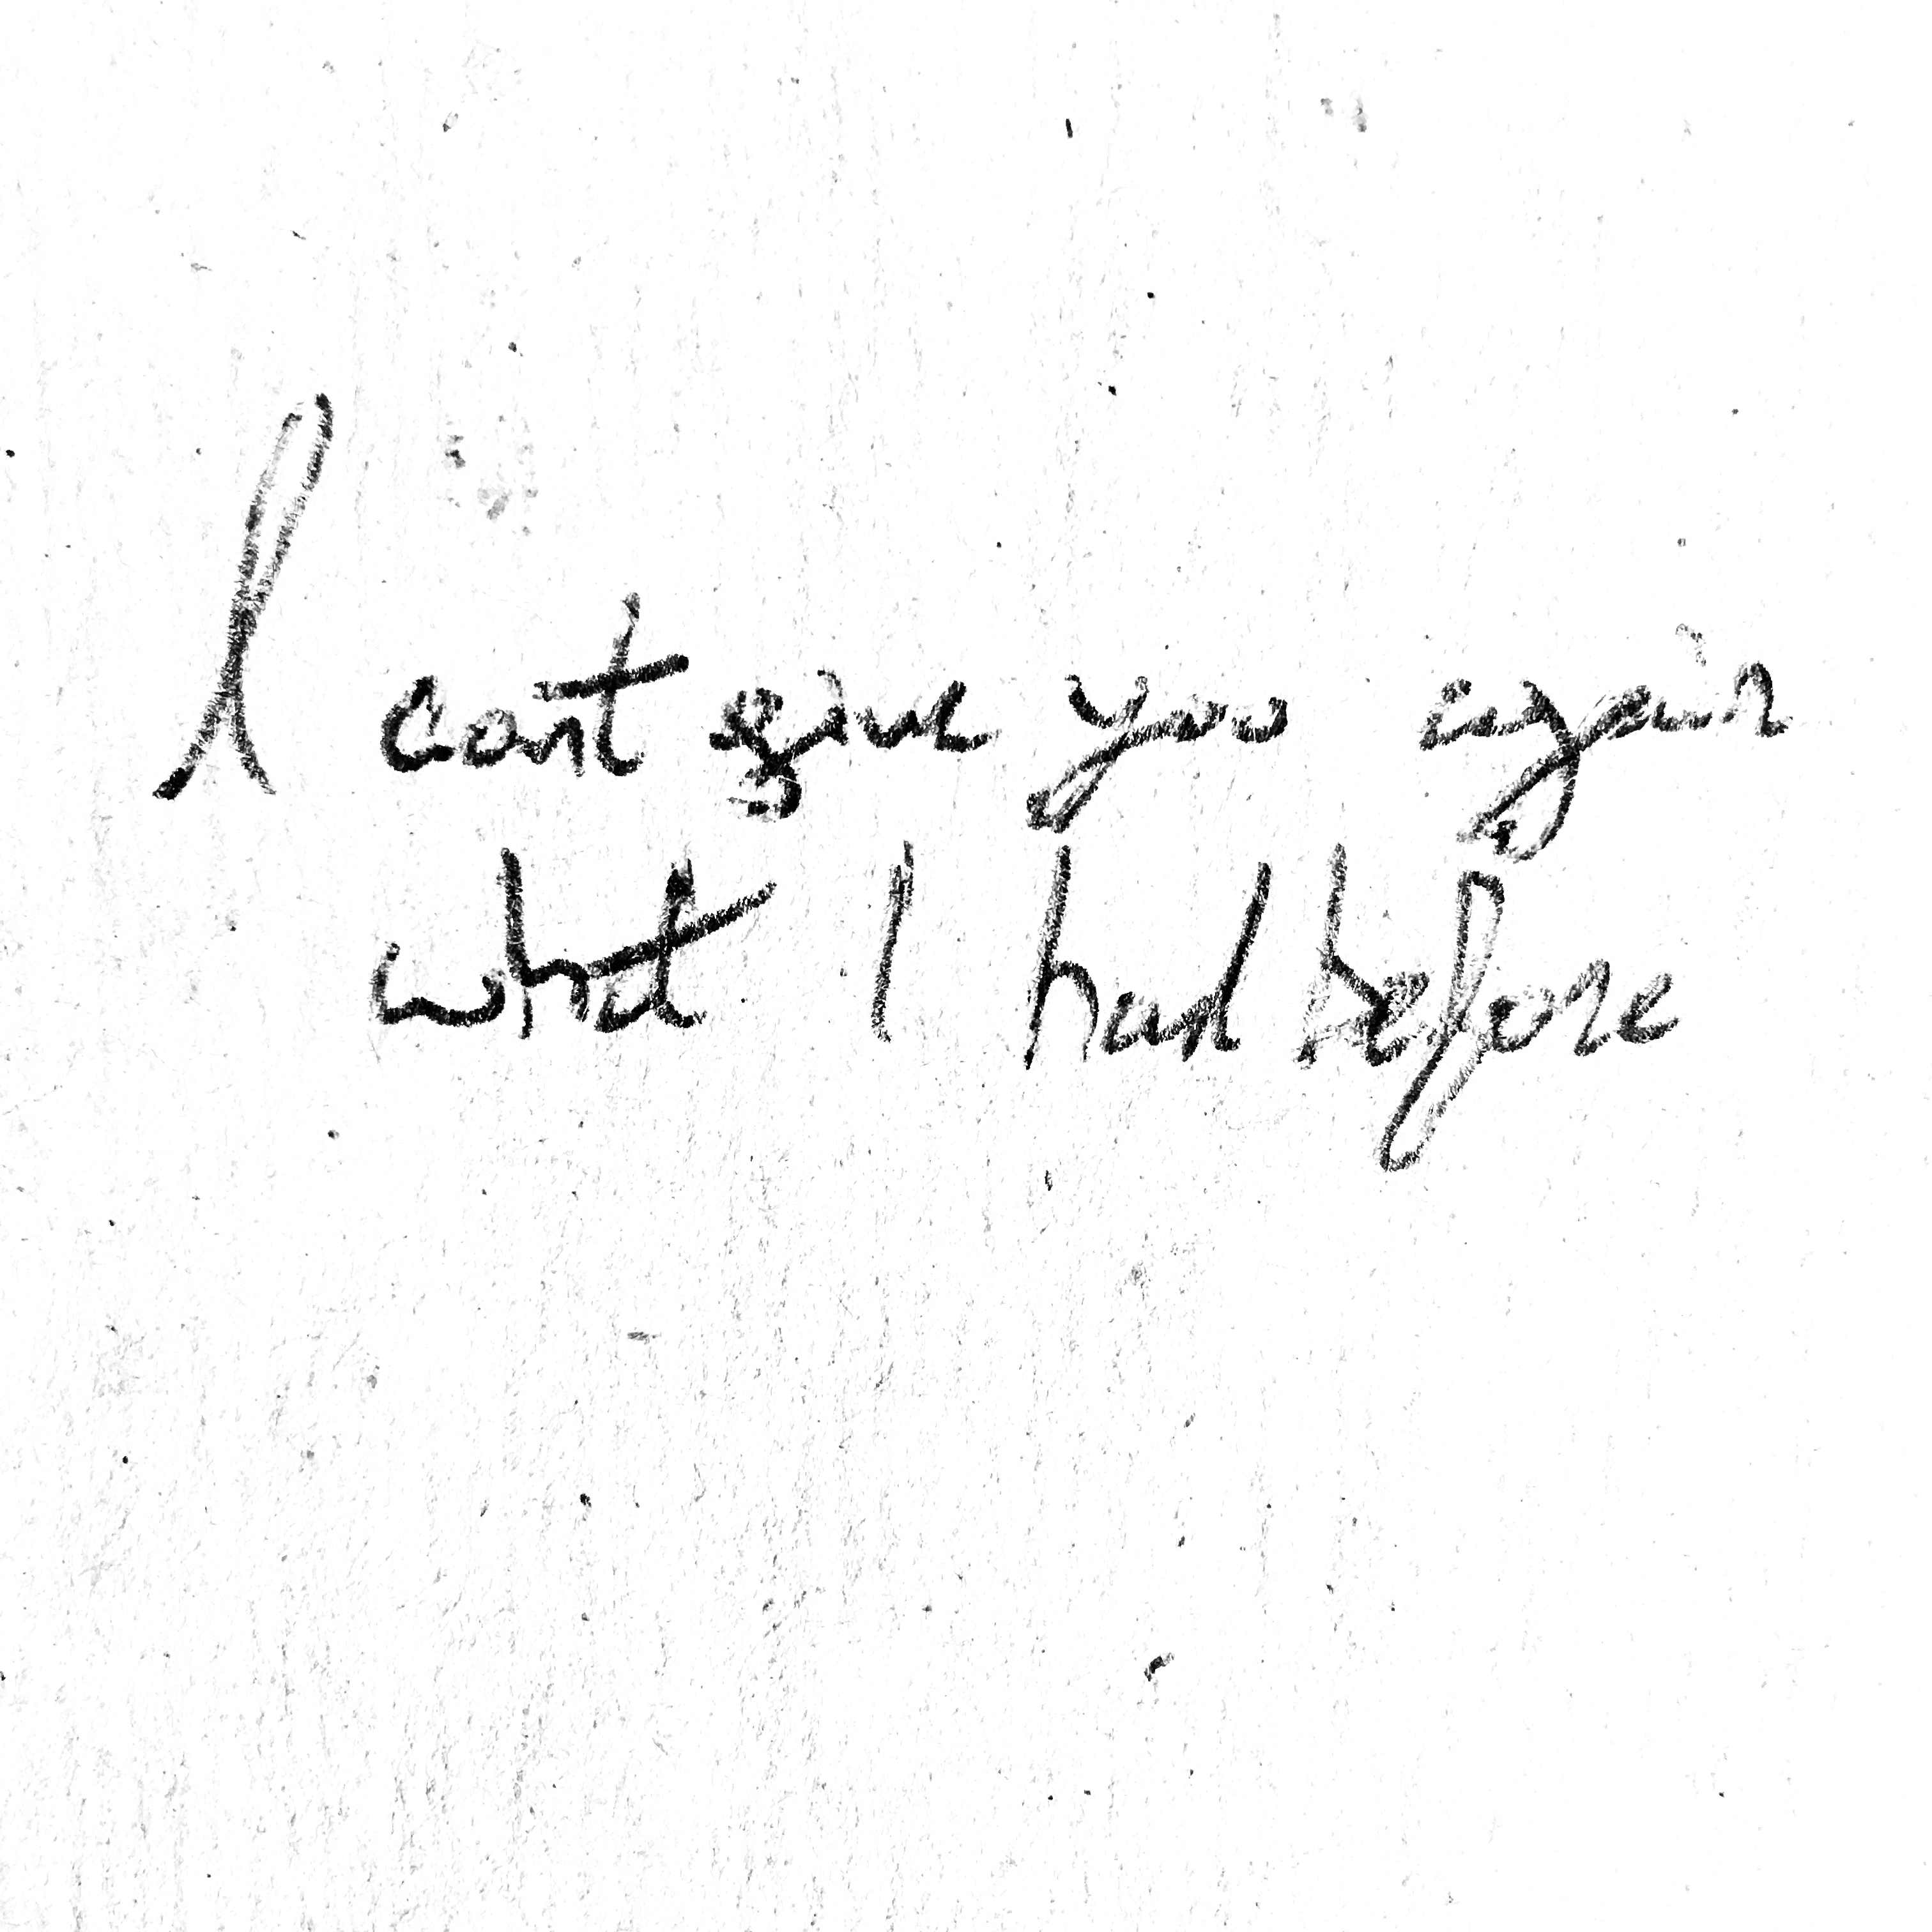 I cant give you again
what I had before